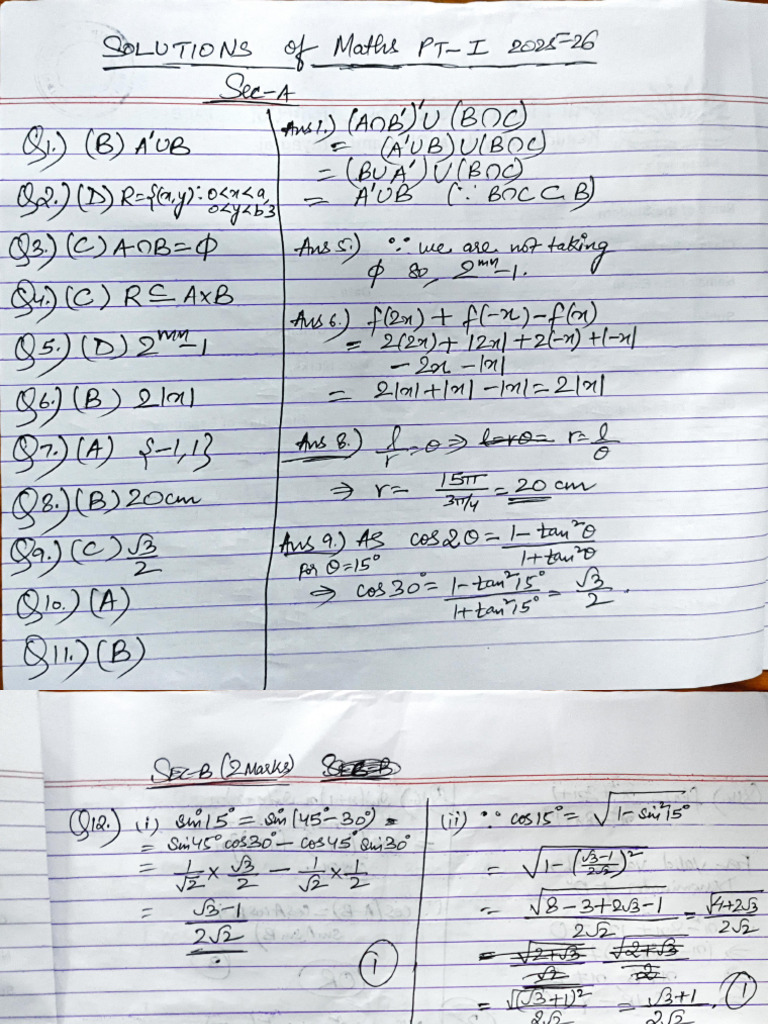 SOLUTIONS of Maths PT-I 2025-26
Sec-A
Q1.) (B) A'∪B
Q2.) (D) R={(x,y): 0<x<a, 0<y<b}
Q3.) (C) A∩B=φ
Q4.) (C) R⊆A×B
Q5.) (D) 2^mn-1
Q6.) (B) 2|x|
Q7.) (A) {-1,1}
Q8.) (B) 20cm
Q9.) (C) √3/2
Q10.) (A)
Q11.) (B)
Ans 1.) (A∩B')'∪(B∩C)
= (A'∪B)∪(B∩C)
= (B∪A')∪(B∩C)
= A'∪B (∵ B∩C⊂B)
Ans 5.) ∵ we are not taking
φ so, 2^mn-1.
Ans 6.) f(2x) + f(-x) - f(x)
= 2(2x)+|2x|+2(-x)+|-x|
- 2x - |x|
= 2|x|+|x|-|x|=2|x|
Ans 8.) l/r=θ ⇒ l=rθ= r=l/θ
⇒ r= 15π/(3π/4) = 20 cm
Ans 9.) As cos2θ = (1-tan²θ)/(1+tan²θ)
for θ=15°
⇒ cos30° = (1-tan²15°)/(1+tan²15°) = √3/2.
SEC-B (2 Marks)
Q12.) (i) sin15° = sin(45°-30°) =
= sin45°cos30° - cos45°sin30°
= 1/√2 × √3/2 - 1/√2 × 1/2
= (√3-1)/(2√2)
1
(ii) ∵ cos15° = √(1-sin²15°)
= √(1-((√3-1)/(2√2))²)
= √(8-3+2√3-1)/(2√2) = √(4+2√3)/(2√2)
= √(2+√3)/√2 √(2+√3)/2
= √((√3+1)²)/(2√2) = (√3+1)/(2√2).
1